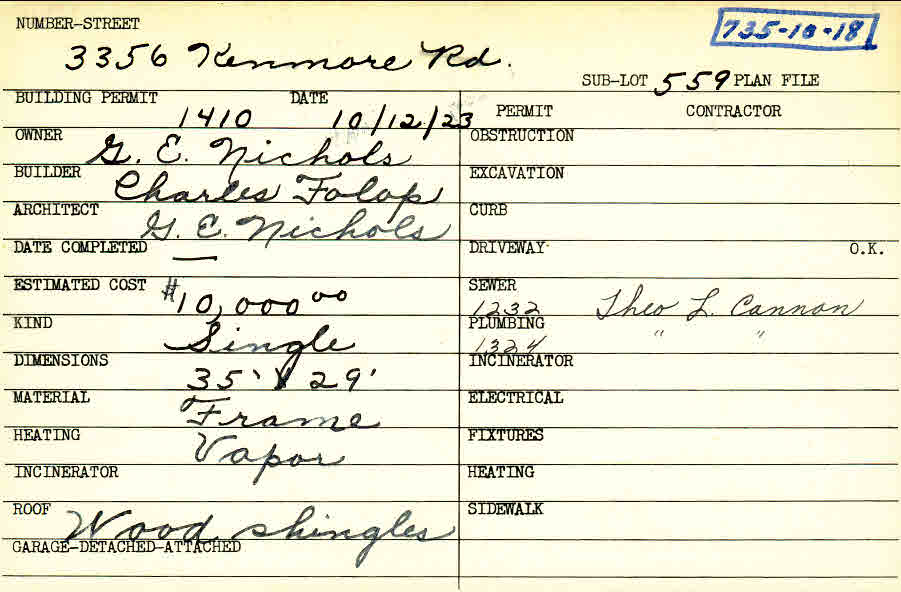 NUMBER-STREET
735-10-18
3356 Kenmore Rd.
SUB-LOT 559 PLAN FILE
BUILDING PERMIT 1410 DATE 10/12/23
PERMIT CONTRACTOR
OWNER G. E. Nichols
OBSTRUCTION
BUILDER Charles Folop
EXCAVATION
ARCHITECT G. E. Nichols
CURB
DATE COMPLETED —
DRIVEWAY O.K.
ESTIMATED COST #10,000 00
SEWER 1232 Theo L. Cannon
KIND Single
PLUMBING 1324 " "
DIMENSIONS 35' X 29'
INCINERATOR
MATERIAL Frame
ELECTRICAL
HEATING Vapor
FIXTURES
INCINERATOR
HEATING
ROOF Wood shingles
SIDEWALK
GARAGE-DETACHED-ATTACHED